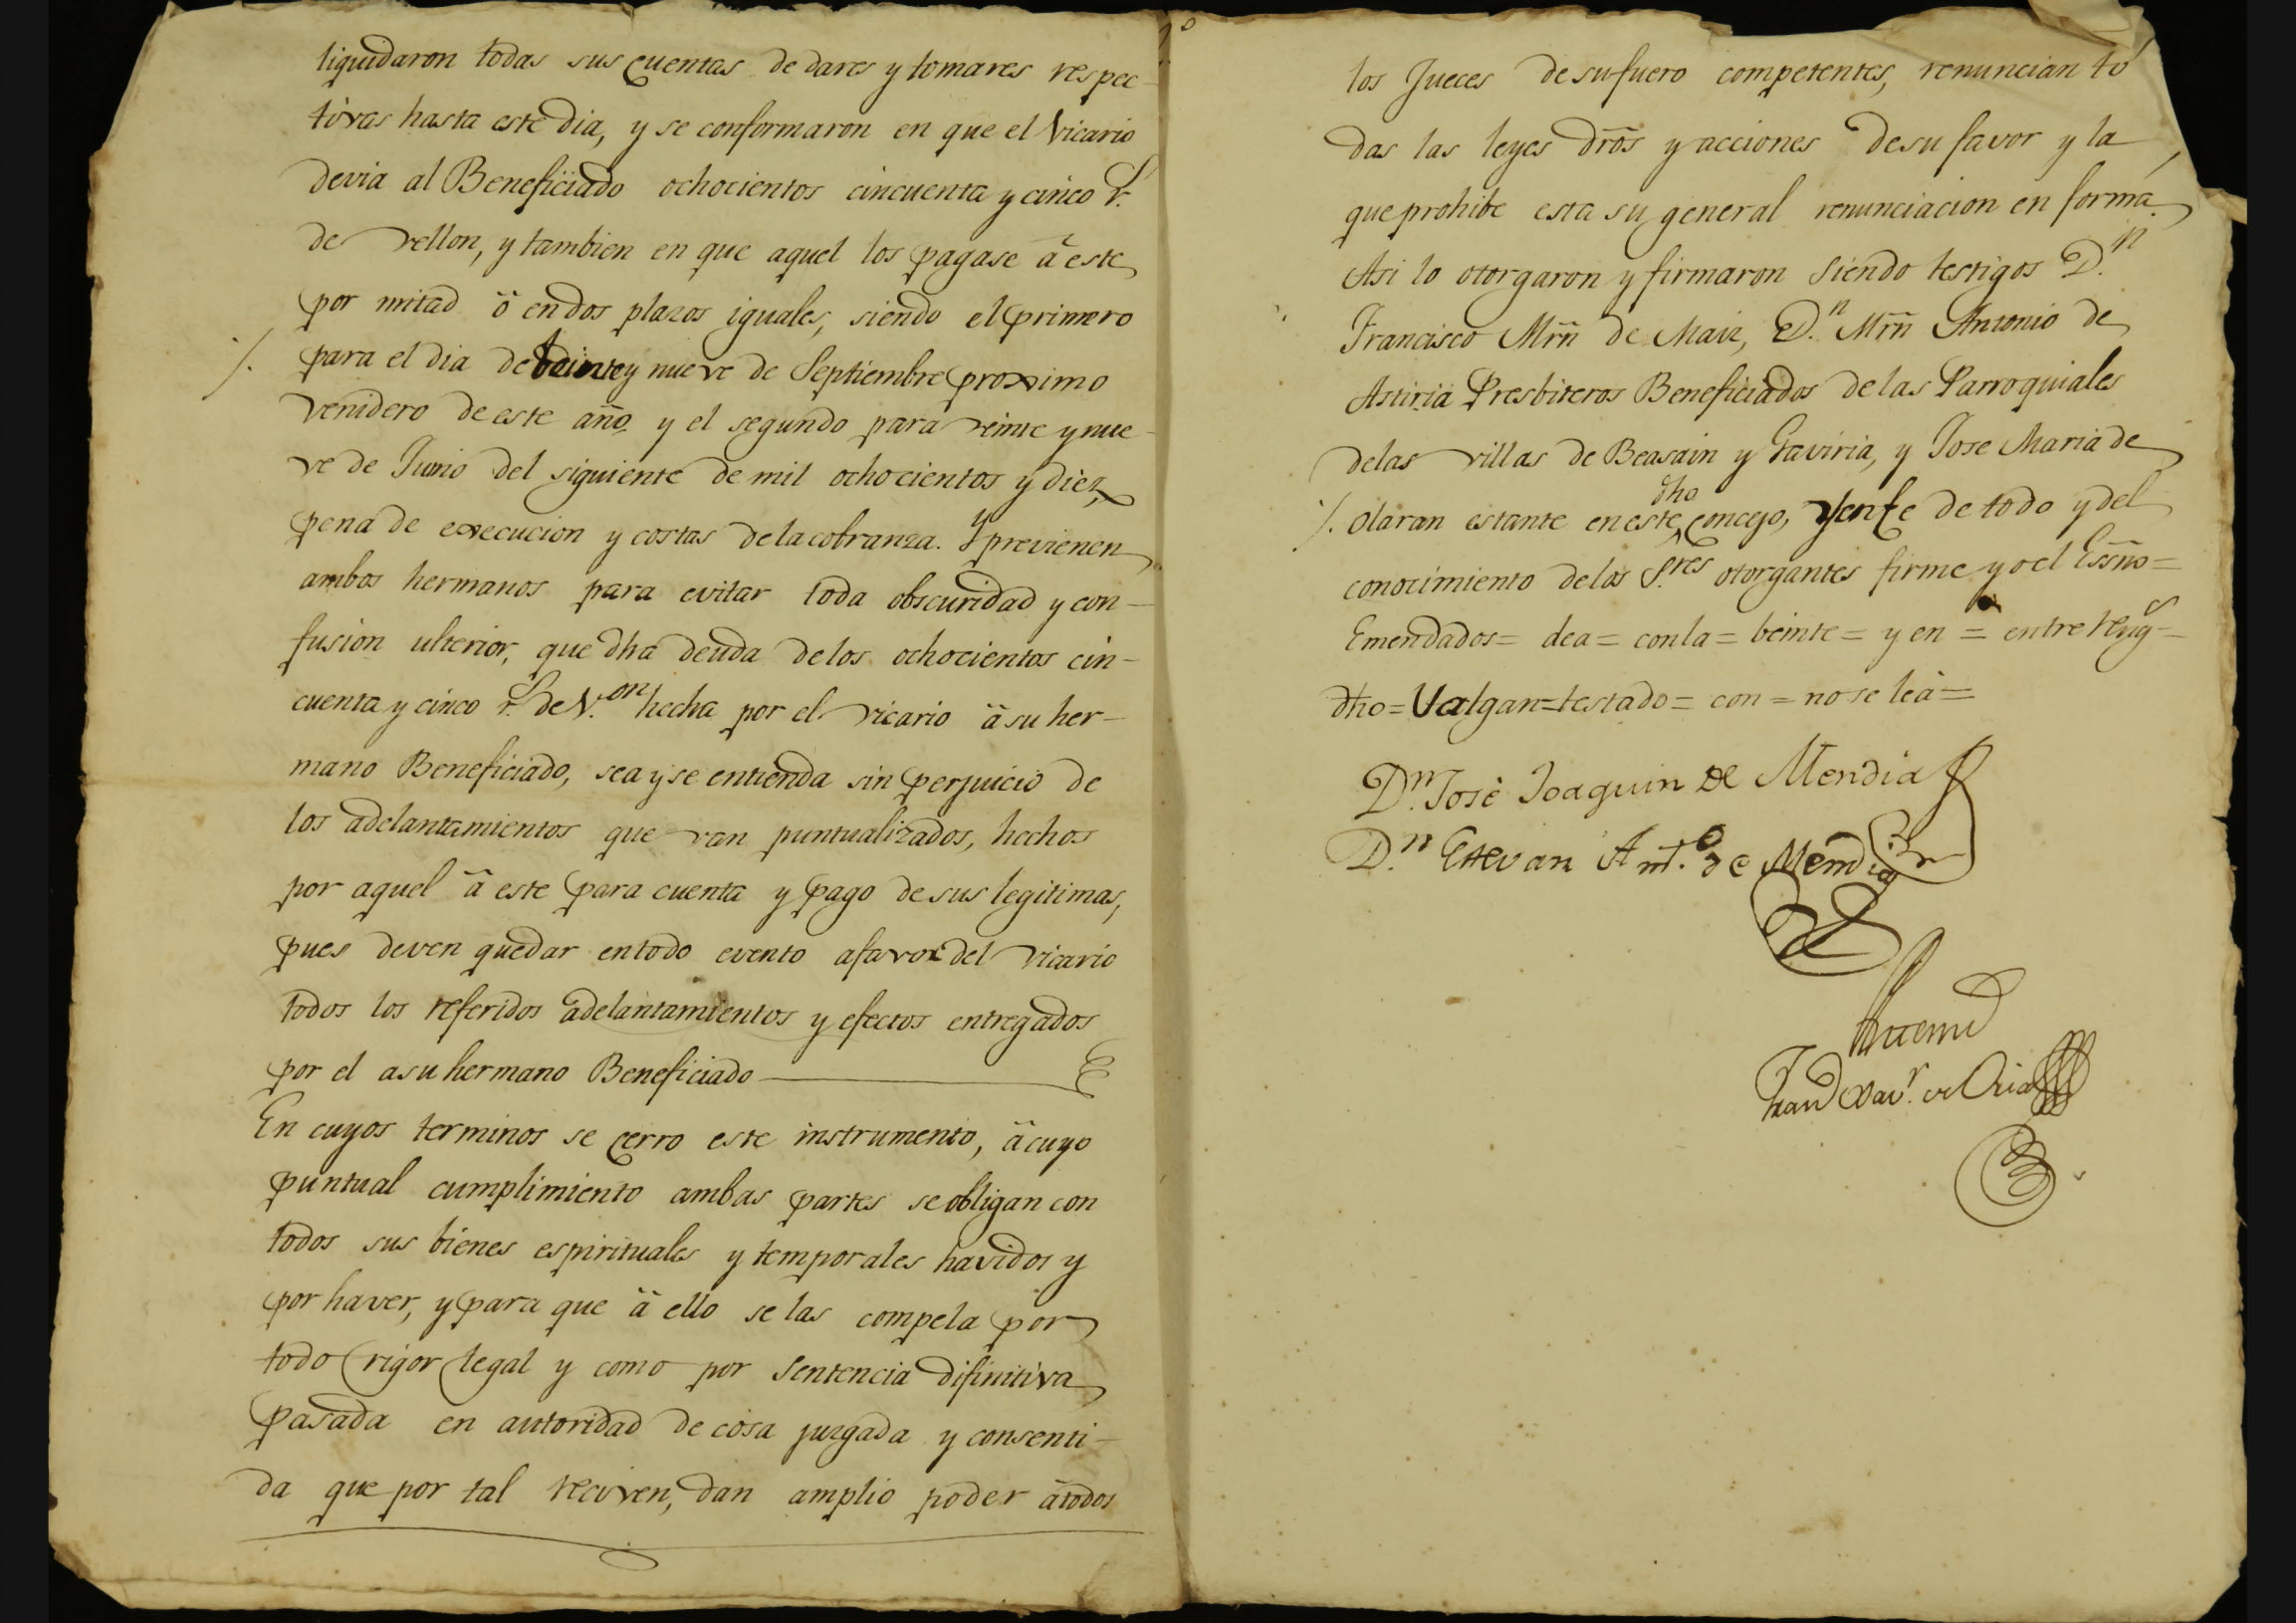 liquidaron todas sus cuentas de dares y tomares respec-
tivas hasta este dia, y se conformaron en que el Vicario
devia al Beneficiado ochocientos cincuenta y cinco r.s
de vellon, y tambien en que aquel los pagase â este
por mitad ô en dos plazos iguales, siendo el primero
/. para el dia de beinte y nueve de Septiembre proximo
venidero de este año, y el segundo para veinte y nue-
ve de Junio del siguiente de mil ochocientos y diez,
pena de execucion y costas de la cobranza. Y previenen
ambos hermanos para evitar toda obscuridad y con-
fusion ulterior, que dha deuda de los ochocientos cin-
cuenta y cinco r.s de V.on hecha por el vicario â su her-
mano Beneficiado, sea y se entienda sin perjuicio de
los adelantamientos que van puntualizados, hechos
por aquel â este para cuenta y pago de sus legitimas,
pues deven quedar en todo evento a favor del vicario
todos los referidos adelantamientos y efectos entregados
por el a su hermano Beneficiado
En cuyos terminos se cerro este instrumento, â cuyo
puntual cumplimiento ambas partes se obligan con
todos sus bienes espirituales y temporales havidos y
por haver, y para que â ello se las compela por
todo rigor legal y como por Sentencia difinitiva
pasada en autoridad de cosa juzgada y consenti-
da que por tal reciven, dan amplio poder â todos
los Jueces de su fuero competentes, renuncian to
das las leyes drõs y acciones de su favor y la
que prohibe esta su general renunciacion en forma.
Asi lo otorgaron y firmaron siendo testigos D.n
Francisco Mrñ de Maiz, D.n Mrñ Antonio de
Astiria Presbiteros Beneficiados de las Parroquiales
de las villas de Beasain y Gaviria, y Jose Maria de
dho
/. Olaran estante en este concejo, y en fe de todo y del
conocimiento de los S.res otorgantes firme yo el Essño =
Emendados = dea = con la = beinte = y en = entre reng.s =
dho = Valgan = testado = con = no se lea =
D.n José Joaquin de Mendia
D.n Estevan Ant.o de Mendia
Antemi
Fran.co Xav.r de